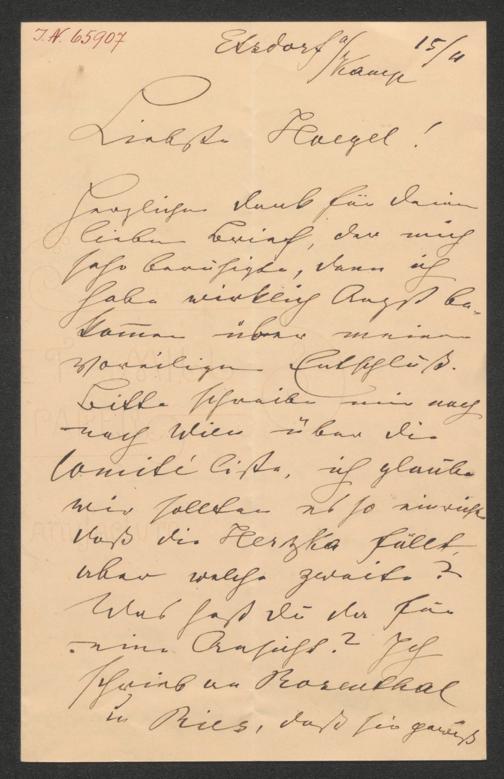 I.N. 65907
Etsdorf a/Kamp 15/11
Liebste Hoegel!
Herzlichen Dank für deinen
lieben Brief, der mich
sehr beruhigte, denn ich
habe wirklich Angst be-
kommen über meinen
voreiligen Entschluß.
Bitte schreibe mir nach
nach Wien über die
Comité liste, ich glaube
wir sollten es so einrichten
daß die Herzka fällt,
aber welche zweite?
Was hast du da für
eine Ansicht? Ich
schrieb an Rosenthal
u Ries, daß sie gewiß